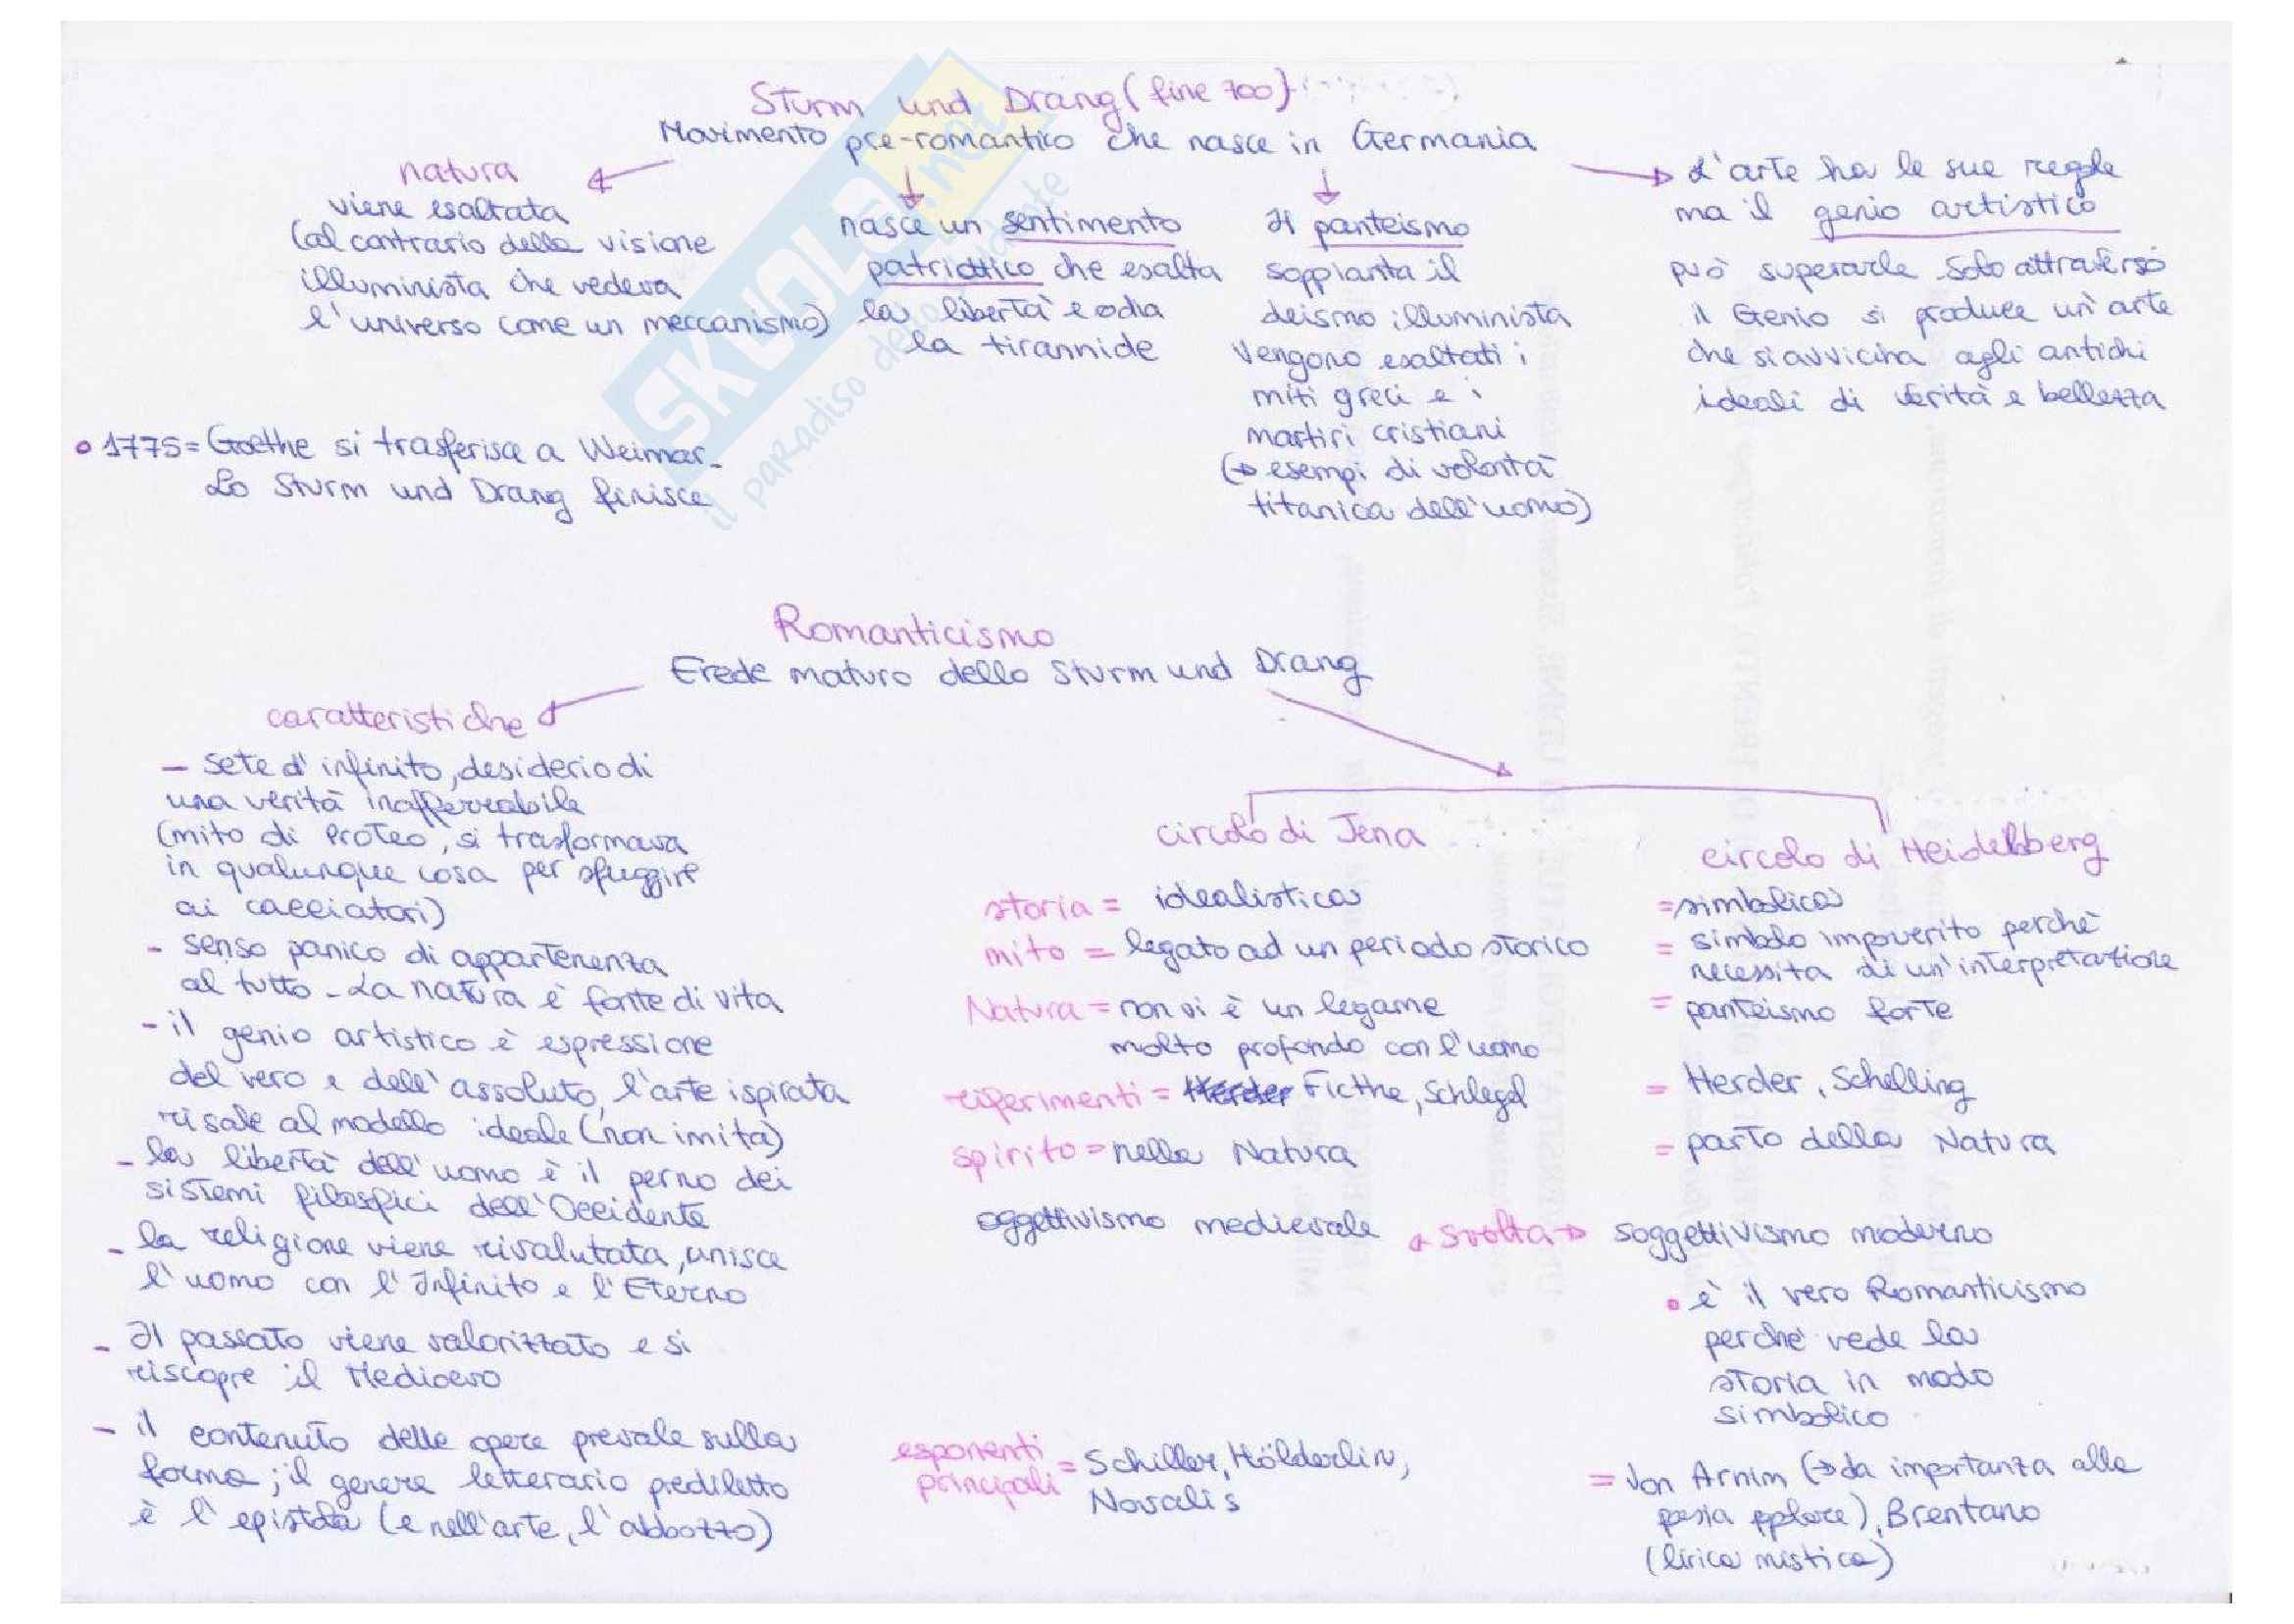 Sturm und Drang (fine 700)
Movimento pre-romantico che nasce in Germania
natura
viene esaltata
(al contrario della visione
illuminista che vedeva
l'universo come un meccanismo)
nasce un sentimento
patriottico che esalta
la libertà e odia
la tirannide
Il panteismo
soppianta il
deismo illuminista
vengono esaltati i
miti greci e i
martiri cristiani
(→ esempi di volontà
titanica dell'uomo)
L'arte ha le sue regole
ma il genio artistico
può superarle solo attraverso
il Genio si produce un'arte
che si avvicina agli antichi
ideali di verità e bellezza
• 1775 = Goethe si trasferisce a Weimar.
Lo Sturm und Drang finisce
SKUOLA.net
il paradiso dello studente
Romanticismo
Erede maturo dello Sturm und Drang
caratteristiche
- sete d'infinito, desiderio di
una verità inafferrabile
(mito di Proteo, si trasformava
in qualunque cosa per sfuggire
ai cacciatori)
- senso panico di appartenenza
al tutto - La natura è fonte di vita
- il genio artistico è espressione
del vero e dell'assoluto, l'arte ispirata
risale al modello ideale (non imita)
- la libertà dell'uomo è il perno dei
sistemi filosfici dell'Occidente
- la religione viene rivalutata, unisce
l'uomo con l'Infinito e l'Eterno
- Il passato viene valorizzato e si
riscopre il Medioevo
- il contenuto delle opere prevale sulla
forma; il genere letterario prediletto
è l'epistola (e nell'arte, l'abbozzo)
circolo di Jena
storia = idealistica
mito = legato ad un periodo storico
Natura = non vi è un legame
molto profondo con l'uomo
riferimenti = Herder Ficthe, Schlegel
spirito = nella Natura
oggettivismo medievale ← svolta → soggettivismo moderno
esponenti
principali = Schiller, Hölderlin,
Novalis
circolo di Heidelberg
= simbolica
= simbolo impoverito perchè
necessita di un'interpretazione
= panteismo forte
= Herder, Schelling
= parto della Natura
• è il vero Romanticismo
perchè vede la
storia in modo
simbolico
= Von Arnim (→ da importanza alla
poesia pplare), Brentano
(lirica mistica)